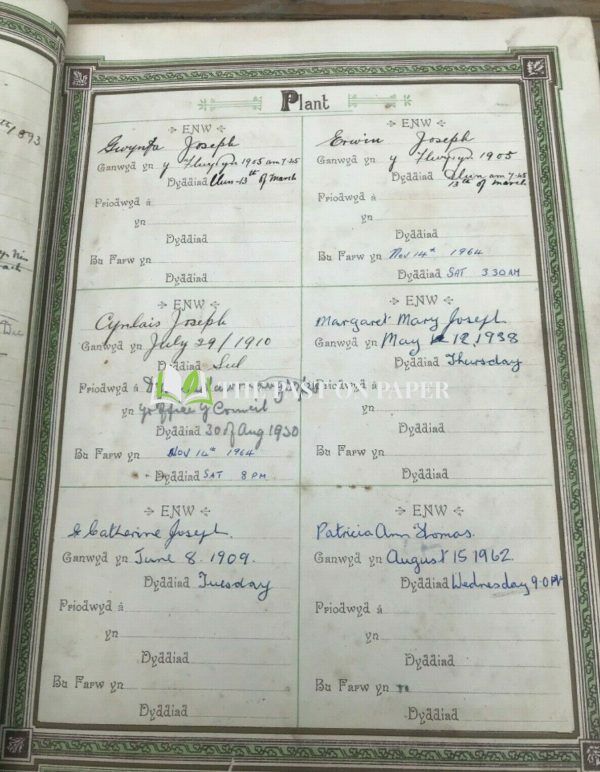 Plant
ENW
Gwynfa Joseph
Ganwyd yn y flwyddyn 1905 am 7.45
Dyddiad Llun 13th of March
Priodwyd â
yn
Dyddiad
Bu Farw yn
Dyddiad
ENW
Erwin Joseph
Ganwyd yn y flwyddyn 1905
Dyddiad Llun am 7.45
13th of March
Priodwyd â
yn
Dyddiad
Bu Farw yn Nov 14th 1964
Dyddiad SAT 3 30 AM
ENW
Cynlais Joseph
Ganwyd yn July 29/1910
Dyddiad Sul
Priodwyd â
yn Yr Office y Council
Dyddiad 30 of Aug 1930
Bu Farw yn Nov 14th 1964
Dyddiad SAT 8 PM
ENW
Margaret Mary Joseph
Ganwyd yn May 12, 1938
Dyddiad Thursday
Priodwyd â
yn
Dyddiad
Bu Farw yn
Dyddiad
ENW
Catherine Joseph.
Ganwyd yn June 8. 1909.
Dyddiad Tuesday
Priodwyd â
yn
Dyddiad
Bu Farw yn
Dyddiad
ENW
Patricia Ann Thomas.
Ganwyd yn August 15 1962
Dyddiad Wednesday 9.0 PM
Priodwyd â
yn
Dyddiad
Bu Farw yn
Dyddiad
THE PAST ON PAPER